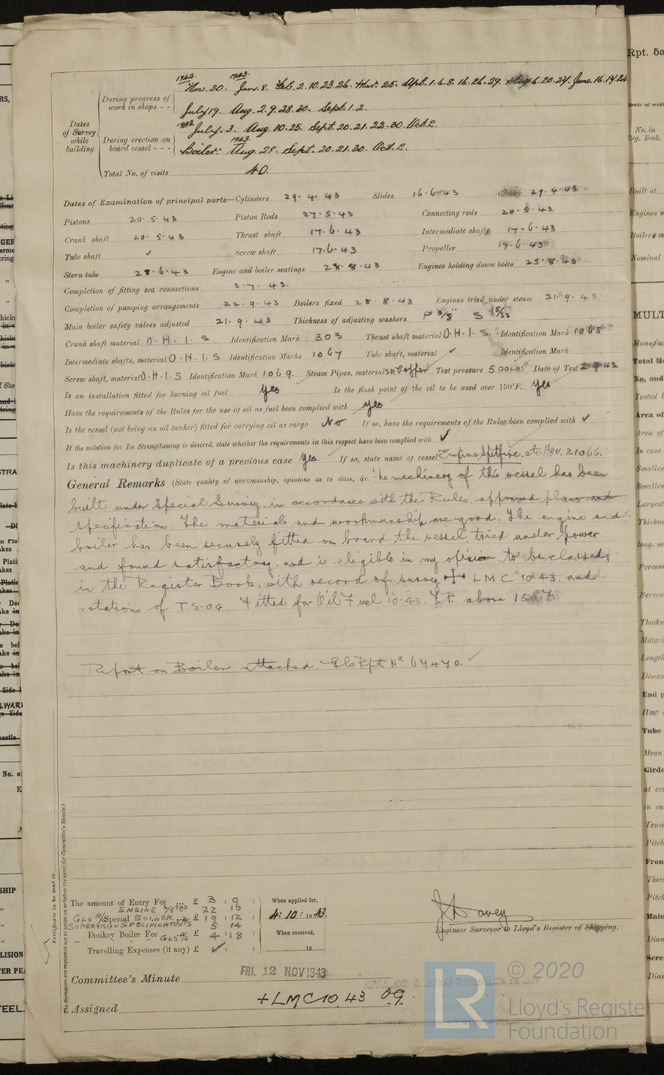 1942. 1943.
During progress of work in shops - - Nov. 30. Jan. 8. Feb. 2. 10. 23. 26. Mar. 25. Apl. 1. 6. 8. 16. 26. 29. May 6. 20. 24. June. 16. 17.
July 19. Aug. 2. 9. 28. 30. Sept. 1. 2.
Dates of Survey while building
During erection on board vessel - - - July. 3. Aug. 10. 25. Sept. 20. 21. 22. 30. Oct. 2.
Boiler: Aug 28. Sept. 20. 21. 30. Oct. 2.
Total No. of visits 40.
Dates of Examination of principal parts—Cylinders 29.4.43 Slides 16.6.43 29.4.43
Pistons 20.5.43 Piston Rods 27.5.43 Connecting rods 20.5.43
Crank shaft 20.5.43 Thrust shaft 17.6.43 Intermediate shafts 17.6.43
Tube shaft ✓ Screw shaft 17.6.43 Propeller 17.6.43
Stern tube 28.6.43 Engine and boiler seatings 28.8.43 Engines holding down bolts 25.8.43
Completion of fitting sea connections 3.7.43.
Completion of pumping arrangements 22.9.43 Boilers fixed 28.8.43 Engines tried under steam 21.9.43
Main boiler safety valves adjusted 21.9.43 Thickness of adjusting washers P 3/8 S
Crank shaft material O.H.I.S Identification Mark 303 Thrust shaft material O.H.I.S Identification Mark 1065
Intermediate shafts, material O.H.I.S Identification Marks 1067 Tube shaft, material ✓ Identification Mark
Screw shaft, material O.H.I.S Identification Mark 1069. Steam Pipes, material SD Copper Test pressure 500 lbs Date of Test
Is an installation fitted for burning oil fuel Yes Is the flash point of the oil to be used over 150°F. Yes
Have the requirements of the Rules for the use of oil as fuel been complied with Yes
Is the vessel (not being an oil tanker) fitted for carrying oil as cargo No If so, have the requirements of the Rules been complied with ✓
If the notation for Ice Strengthening is desired, state whether the requirements in this respect have been complied with ✓
Is this machinery duplicate of a previous case Yes. If so, state name of vessel Empire Spitfire etc 21066.
General Remarks (State quality of workmanship, opinions as to class, &c. The machinery of this vessel has been
built under Special Survey in accordance with the Rules, approved plans and
specification. The materials and workmanship are good. The engine and
boiler has been securely fitted on board the vessel tried under power
and found satisfactory, and is eligible in my opinion to be classed
in the Register Book, with record of survey + LMC 10.43, and
notations of T.S.OG. Fitted for Oil Fuel 10.43. F.P. above 150°F.
Report on Boiler attached. Gls Rpt No 67470.
Certificate to be sent to
The amount of Entry Fee ... £ 3 : 0 : When applied for,
ENGINE 22 10
Special BOILER £ 19 : 12 : 4.10.1943.
SUPERVISION SPECIFICATION 5 14
Donkey Boiler Fee £ 4 : 18 : When received,
Travelling Expenses (if any) £ ✓ : 19
J Davey
Engineer Surveyor to Lloyd's Register of Shipping.
Committee's Minute FRI. 12 NOV 1943
Assigned +LMC 10.43 O.G.
LR
© 2020
Lloyd's Register
Foundation